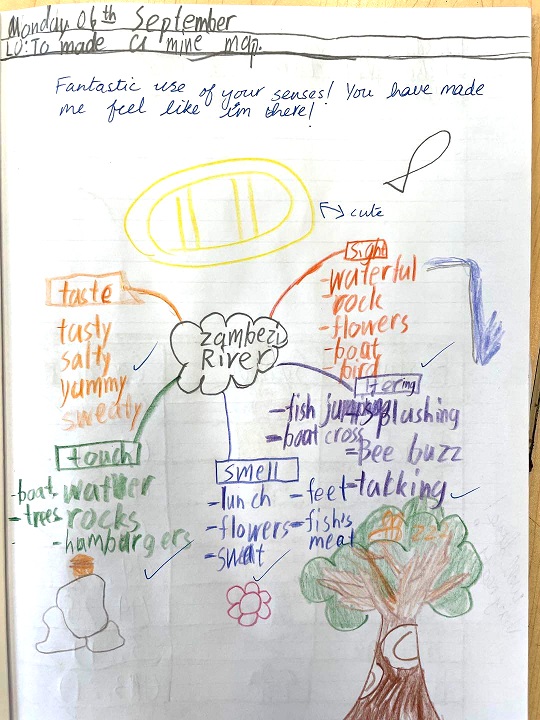 Monday 06th September
LO: To made a mine map.
Fantastic use of your senses! You have made
me feel like I'm there!
cute
Sight
-waterful
rock
-flowers
-boat
-bird
taste
tasty
salty
yummy
sweaty
zambezi
River
Hering
-fish jumping
-splashing
-boat cross
-Bee buzz
-takking
touch
-boat watter
-trees rocks
-hamburgers
smell
-lunch
-flowers
-sweat
-feet
-fish's
meat